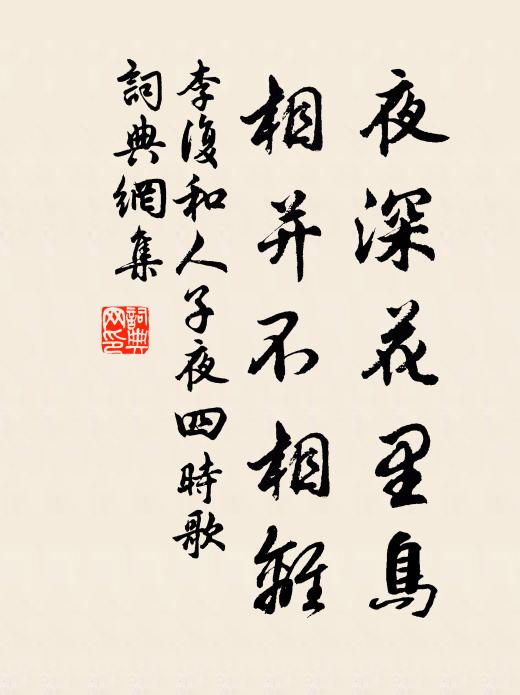 夜深花里鳥
相并不相離
李復和人子夜四時歌
詞典網集
詞典网印